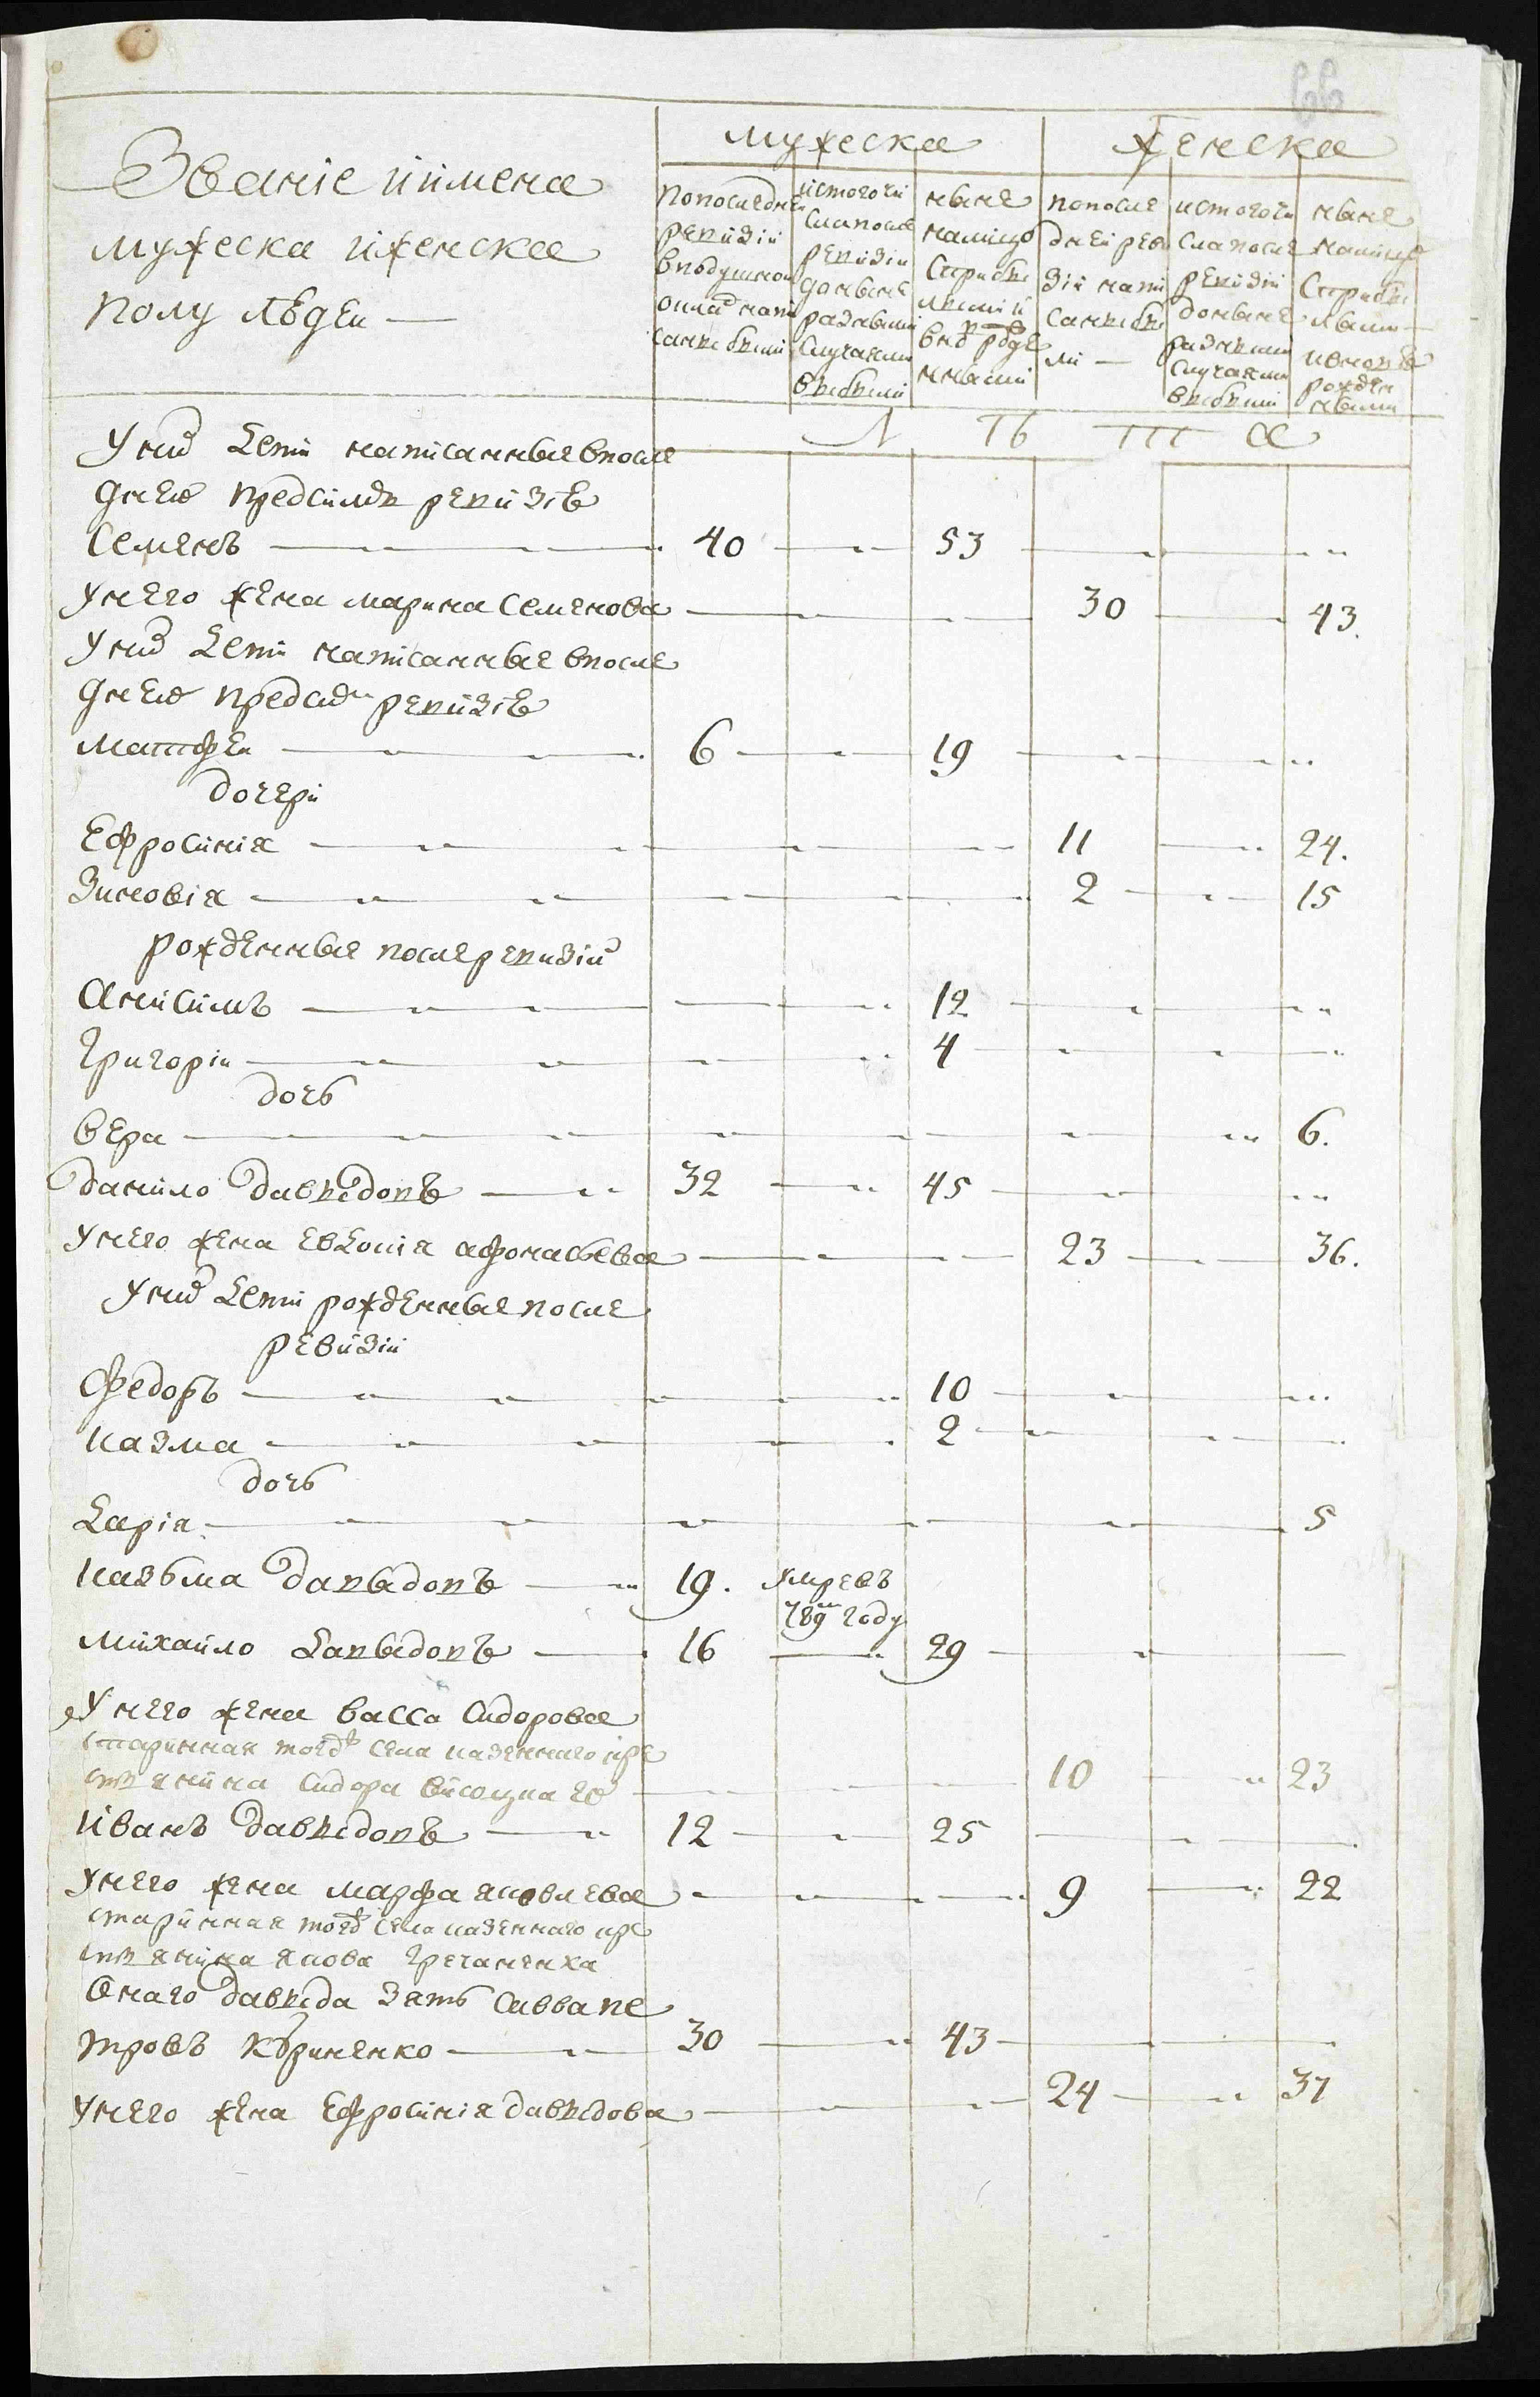 66
Званіе иимена
мужеска иженска
полу людеи —
мужеска
женска
попоследнеи ревизіи вподушном окладе написанными
изтого числа после ревизіи доныне разными случаями выбыли
ныне налицо старыми и вновь рожденными
попоследнеи ревизіи написанными —
изтого числа после ревизіи доныне разными случаями выбыли
ныне налицо старыми — ивновь рожденными
Л Ѣ Т А
Уних дети написанные впосле
днею предсимъ ревизіе
Семенъ 40 53
Унего жена марина Семенова 30 43.
Уних дети написанные впосле
днею предсим ревизіе
матфеи 6 19
дочери
Ефросинія 11 24.
Зиновія 2 15
рожденные послеревизіи
Анисимъ 12
Григоріи 4
дочь
вера 6.
данило давыдовъ 32 45
Унего жена евдокія афонасьева 23 36.
Уних дети рожденные после
ревизіи
Федоръ 10
казма 2
дочь
дарія 5
казьма давыдовъ 19. умре въ
789м году
михайло давыдовъ 16 29
Унего жена васса Сидорова
старинная тогож села казенного кре
стянина Сидора 10 23
иванъ давыдовъ 12 25
Унего жена марфа яковлева 9 22
старинная тогож села казенного кре
стянина якова
Онаго давыда зять Савва пе
тровъ 30 43
Унего жена Ефросинія давыдова 24 37